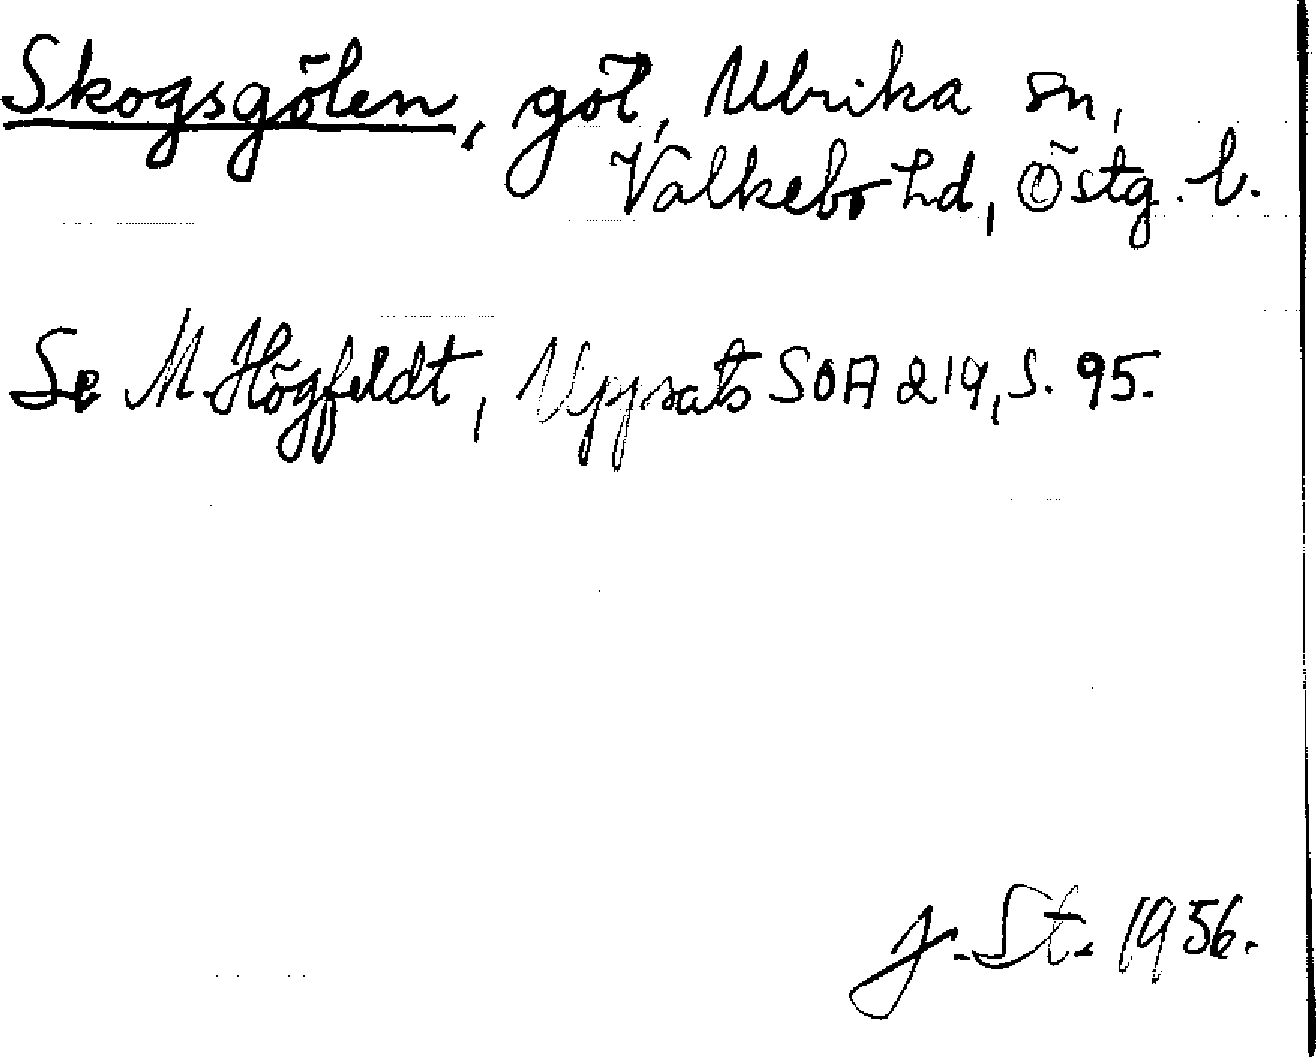 Skogsgölen, göl, Ulrika sn,
Valkebo hd, Östg. l.
Se M. Högfeldt, Uppsats SOA 219, s. 95.
J. St. 1956.